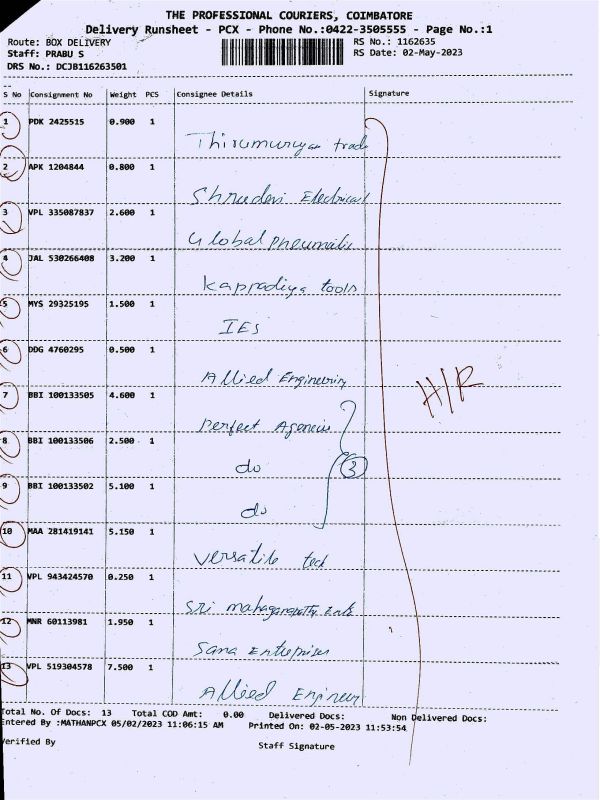 THE PROFESSIONAL COURIERS, COIMBATORE
Delivery Runsheet - PCX - Phone No.:0422-3505555 - Page No.:1
Route: BOX DELIVERY RS No.: 1162635
Staff: PRABU S RS Date: 02-May-2023
DRS No.: DCJB116263501
S No Consignment No Weight PCS Consignee Details Signature
1 PDK 2425515 0.900 1
Thirumurugan trade
2 APK 1204844 0.800 1
Shreedevi Electrical
3 VPL 335087837 2.600 1
Global pneumatic
4 JAL 530266408 3.200 1
Kapradiya tools
5 MYS 29325195 1.500 1
IES
6 DDG 4760295 0.500 1
Allied Engineering
7 BBI 100133505 4.600 1
H/R
perfect Agencies
8 BBI 100133506 2.500 1
do
3
9 BBI 100133502 5.100 1
do
10 MAA 281419141 5.150 1
versatile tech
11 VPL 943424570 0.250 1
Sri
12 MNR 60113981 1.950 1
Sana Enterprises
13 VPL 519304578 7.500 1
Allied Engineer
Total No. Of Docs: 13 Total COD Amt: 0.00 Delivered Docs: Non Delivered Docs:
Entered By :MATHANPCX 05/02/2023 11:06:15 AM Printed On: 02-05-2023 11:53:54
Verified By
Staff Signature